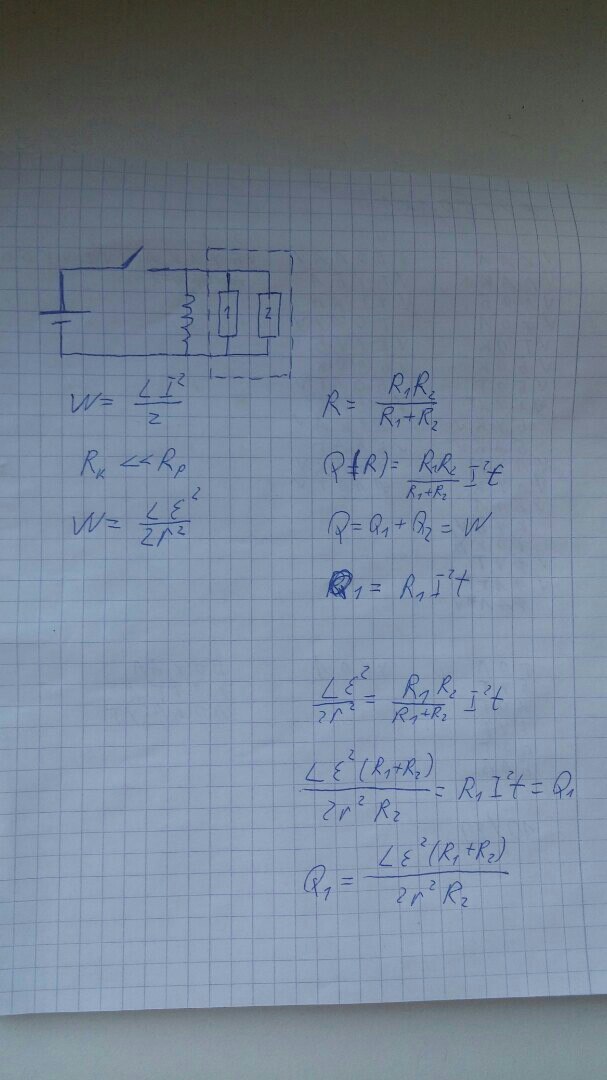 1 2
W = LI²/2
R_K << R_P
W = Lε²/2r²
R = R₁R₂/R₁+R₂
Q(R) = R₁R₂/R₁+R₂ I²t
Q = Q₁ + Q₂ = W
Q₁ = R₁I²t
Lε²/2r² = R₁R₂/R₁+R₂ I²t
Lε²(R₁+R₂)/2r²R₂ = R₁I²t = Q₁
Q₁ = Lε²(R₁+R₂)/2r²R₂